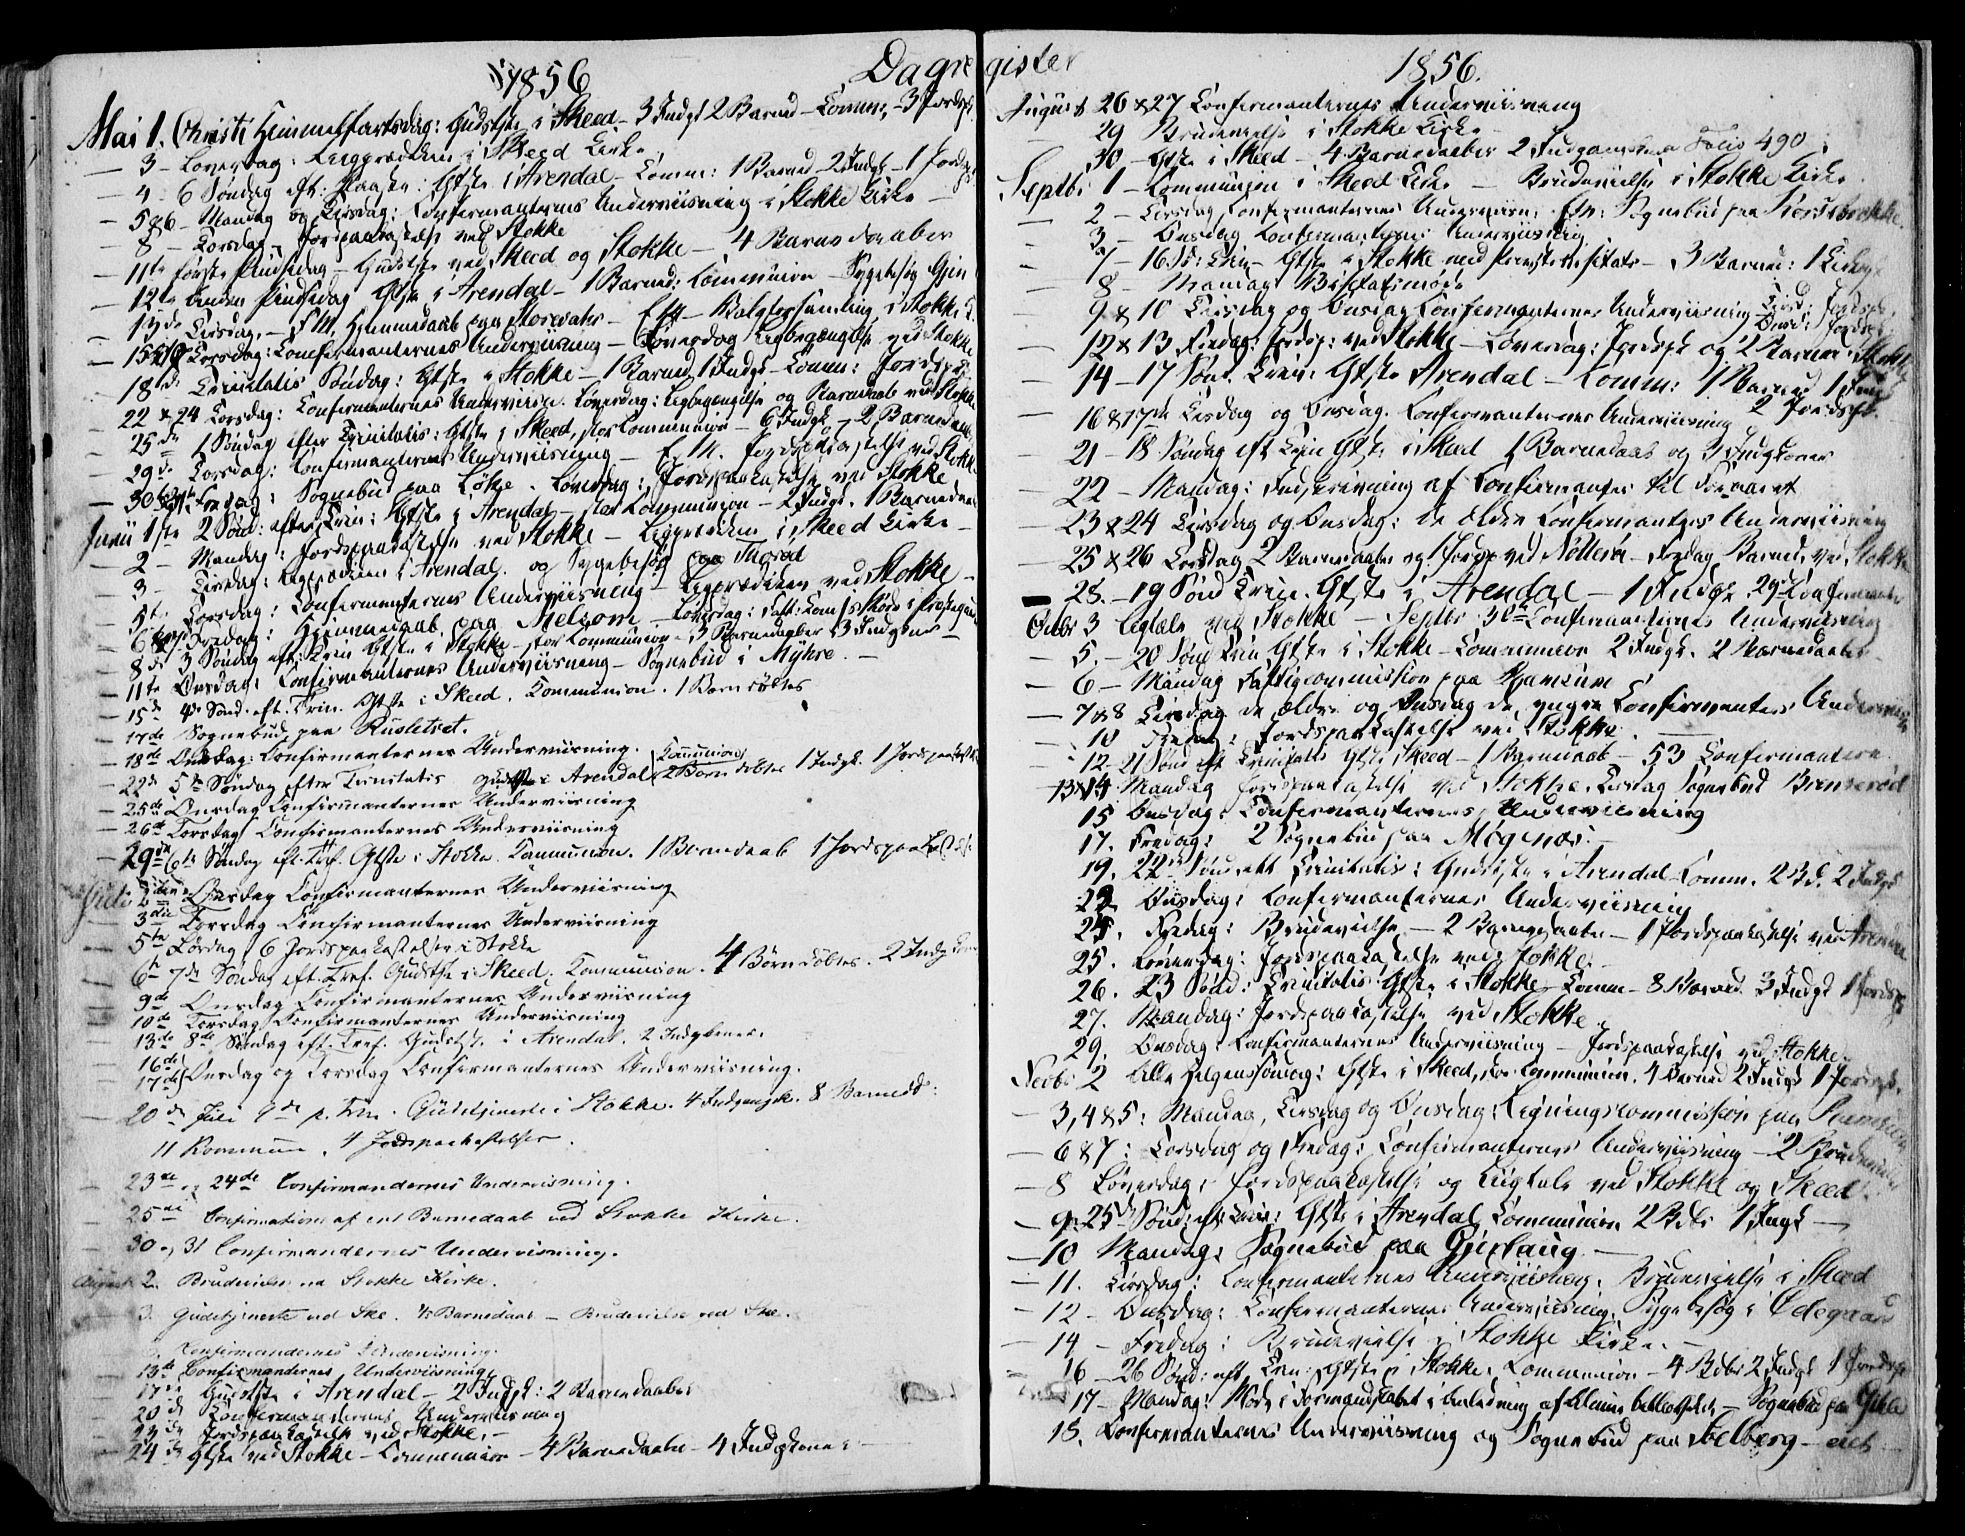 1856 Dagregister 1856.
Mai 1. Christi Himmelfartsdag: Gudstjste i Skeed - 3 Indgk 2 Barned - Comm: - 3 Jordsp
- 3 - Løverdag: Liigprædiken i Skeed Kirke
- 4 - 6 Søndag eft: Paaske: Gtste i Arendal - Comm: 1 Barned - 2 Indgk - 1 Jordsp
- 5 & 6 - Mandag og Tirsdag: Confirmanternes Underviisning i Stokke Kirke -
- 8 - Torsdag - Jordpaakastelse ved Stokke
- 11te første Pindsedag - Gudstste ved Skeed og Stokke - 4 Barnedaaber
- 12te Anden Pindsedag Gtste i Arendal - 1 Barned: Communion - Sygebesøg Gjen
- 13de Tirsdag. - F.M. Hjemmedaab paa Storevahr - Eftm - Valgforsamling i Stokke K.
- 15 & 16 Torsdag: Confirmanternes Underviisning - Løverdag Liigbegængelse ved Stokke
- 18de Trinitatis Søndag: Gtste i Stokke - 1 Barned 1 Indgk - Comm: Jordsp
- 22 & 24 Torsdag: Confirmanternes Underviisn. Løverdag: Liigbegængelse og Barnedaab ved Stokke
- 25de 1 Søndag efter Trinitatis: Gtste i Skeed, stor Communion - 6 Indgk - 2 Barnedaab
- 29de Torsdag: Confirmanternes Underviisning - E.M. Jordpaakastelse ved Stokke
- 30 & 31te Fredag: Sognebud paa Løkke. Løverdag: Jordpaakastelse ved Stokke
Junii 1ste 2 Sønd: efter Trin: Gtste i Arendal - stor Communion - 2 Indgk. 1 Barnedaab
- 2 - Mandag: Jordpaakastelse ved Stokke - Liigprædiken i Skeed Kirke -
- 3 - Tirsdag: Liigprædiken i Arendal. og Sygebesøg paa Thorød
- 5te Torsdag: Confirmanternes Underviisning - Liigprædiken ved Stokke -
- 6 & 7 Fredag: Hjemmedaab paa Melsom - Løverdag: Fatt: Comss Møde i Præstegaard
- 8de 3 Søndag eft: Trin Gtste i Stokke - stor Communion - 3 Barnedaaber 3 Indgkoner -
- 11te Onsdag: Confirmanternes Underviisning - Sognebud i Myhre. -
- 15de 4de Sønd. eft. Trin. Gtste i Skeed. Communion. 1 Barn døbtes
- 17de Sognebud paa Rusletvet.
- 18de Onsdag: Confirmanternes Underviisning.
- 22de 5te Søndag efter Trinitatis Gudstste i Arendal Communion 2 Børn døbtes 1 Indgk. 1 Jordspaakast
- 25de Onsdag Confirmanternes Underviisning
- 26de Torsdag Confirmanternes Underviisning
- 29de 6te Søndag eft. Tref. Gtste i Stokke. Communion. 1 Barnedaab 1 Jordspaakastelse
Juli 2den Onsdag Confirmanternes Underviisning
- 3die Torsdag Confirmanternes Underviisning
- 5te Lørdag 6 Jordspaakastelser i Stokke
- 6te 7de Søndag eft. Tref. Gudstste i Skeed. Communion. 4 Børn døbtes. 2 Indgkoner
- 9de Onsdag Confirmanternes Underviisning
- 10de Torsdag Confirmanternes Underviisning
- 13de 8de Søndag eft. Tref. Gudstste i Arendal. 2 Indgkoner.
- 16de
- 17de } Onsdag og Torsdag Confirmanternes Underviisning.
- 20de Juli 9de p. Trin. Gudstjeneste i Stokke. 4 Indgangsk. 8 Barnedd:
11 Kommun, 4 Jordspaakastelser.
- 23de og 24de Confirmandernes Underviisning.
- 25de Confirmation af ent Barnedaab ved Stokke Kirke.
- 30 og 31 Confirmandernes Underviisning.
August 2. Brudevielse ved Stokke Kirke.
- 3. Gudstjeneste ved Ske. Barnedaab - Brudevielse ved Ske.
Confirmandernes Underviisning.
13de Confirmandernes Underviisning
17de Gudstste i Arendal - 2 Indgk: 2 Barnedaaber
20de Confirmandernes Underviisning
23de Jordspaakastelse ved Stokke. -
24de Gtste ved Stokke - Communion - 4 Barnedaaber - 4 Indgkoner -
August 26 & 27 Confirmanternes Underviisning
- 29 Brudevielse i Stokke Kirke -
- 30 - Gtste i Skeed - 4 Barnedaaber 2 Indgangskoner Folio 490
Septbr 1 - Communion i Skeed Kirke - Brudevielse i Stokke Kirke.
- 2 - Tirsdag Confirmanternes Underviisn: Eftm: Sognebud paa
- 3 - Onsdag Confirmanternes Underviisning
- 7 - 16 Sø: Trin - Gtste i Stokke med Provstevisitats - 3 Barned: 1
- 8 - Mandag Visitatsmøde
- 9 & 10 Tirsdag og Onsdag Confirmanternes Underviisning Tirsd: Jordsp. Onsd: Jordsp.
- 12 & 13 Fredag: Jordsp: ved Stokke - Løverdag: Jordspk og 2 Barned: Stokke
- 14 - 17 Sønt. Trin: Gtste Arendal - Comm: 1 Barned 1 Indgk 2 Jordspk.
- 16 & 17de Tirsdag og Onsdag. Confirmanternes Underviisning
- 21 - 18 Søndag eft Trin Gtste i Skeed 1 Barnedaab og 3 Indgkoner
- 22 - Mandag: Indskrivning af Confirmanter til Foraaret
- 23 & 24 Tirsdag og Onsdag: de Ældre Confirmanters Underviisning
- 25 & 26 Torsdag 2 Barnedaaber og 1 Jordsp ved Nøtterø - Fredag Barned. ved Stokke
- 28. - 19 Sønd Trin. Gtste i Arendal - 1 Indgk.
Octbr 3 Liigtale ved Stokke - Septbr 30te Confirmanternes Underviisning
- 5. - 20 Sønd Trin Gtste i Stokke - Communion 2 Indgk. 2 Barnedaaber
- 6 - Mandag Fattigcommission paa
- 7 & 8 Tirsdag de ældre og Onsdag de yngre Confirmanters Underviisn
- 10 Fredag: Jordspaakastelse ved Stokke.
- 12 - 21 Sønd eft Trinitatis Gtste Skeed - 1 Barnedaab - 53 Confirmanter
13 & 14 Mandag Jordspaakastelse ved Stokke. Tirsdag Sognebud Brunnerød
15 Onsdag: Confirmanternes Underviisning
17. Fredag: 2 Sognebud paa Møgenæs. -
19. 22de Sønd. eft Trinitatis: Gudstste i Arendal Comm. 2 Bd. 2 Indgk
22 Onsdag: Confirmanternes Underviisning
24. Fredag: Brudevielse - 2 Barnedaaber - 1 Jordspaakastelse ved Arendal
25. Løverdag: Jordspaakastelse ved Stokke. -
26. 23 Sønd: Trinitatis Gtste i Stokke - Comm - 8 Barned. 3 Indgk 1 Jordsp
27. Mandag: Jordspaakastelse ved Stokke.
29. Onsdag: Confirmanternes Underviisning - Jordspaakastelse ved Stokke.
Novbr 2 Alle Helgenssøndag: Gtste i Skeed, stor Communion. 4 Barned 2 Indgk 1 Jordspk.
- 3, 4 & 5: Mandag, Tirsdag og Onsdag: Ligningscommission paa
- 6 & 7: Torsdag og Fredag: Confirmanternes Underviisning - 2 Brudevielser
- 8 Løverdag: Jordspaakastelse og Liigtale ved Stokke og Skeed.
- 9. 25de Sønd: eft Trin: Gtste i Arendal Communion 2 Bdbr 1 Indgk -
- 10 Mandag: Sognebud paa Gjerlaug. -
- 11. Tirsdag: Confirmanternes Underviisning. Brudevielse i Skeed
- 12 - Onsdag: Confirmanternes Underviisning. Sygebesøg i Ødegaard
- 14 - Fredag: Brudevielse i Stokke Kirke. -
- 16 - 26 Sønd: eft Trin: Gtste i Stokke. Communion - 4 Bdbr 2 Indgk 1 Jordsp
- 17 - Mandag: Møde i Formandskabet i Anledning af - Sognebud paa
- 18. Confirmanternes Underviisning og Sognebud paa